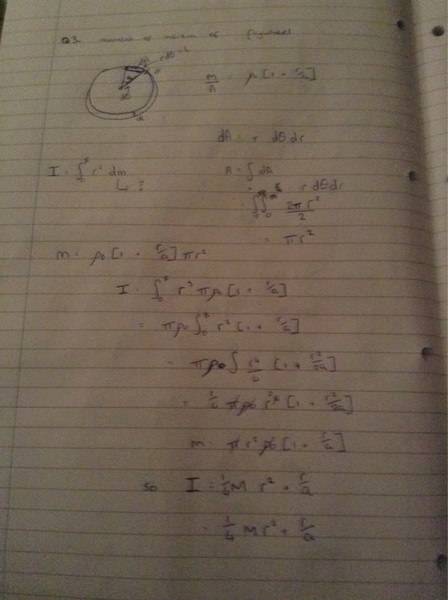 Q3. moment of inertia of flywheel
m/A = ρ[1 + r/a]
dA = r dθ dr
I = ∫ r² dm
↳ ?
A = ∫ dA
∫∫ r dθ dr
2πr²/2
= πr²
m = ρ₀[1 + r/a] πr²
I = ∫ r² πρ₀[1 + r/a]
= πρ₀ ∫ r²[1 + r/a]
= πρ₀ ∫ [1 + r²/2a]
[1 + r²/2a]
m = πr²ρ₀[1 + r/a]
so I = M r² + r/a
= M r² + r/a